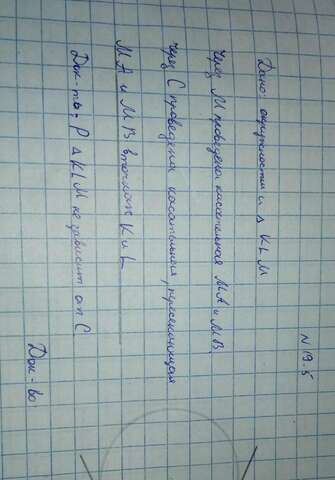 N 19.5
Дано: окружности и Δ KLM
Через M проведены касательная MA и MB
Через C проведены касательная, пересекающая
MA и MB в точках K и L
Док-ть: P Δ KLM не зависит от C
Док-во